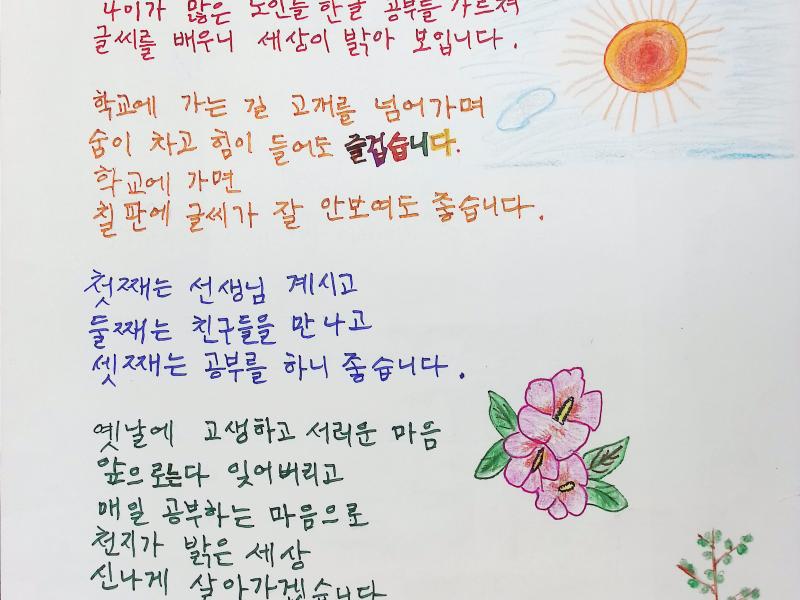 나이가 많은 노인들 한글 공부를 가르쳐
글씨를 배우니 세상이 밝아 보입니다.
학교에 가는 길 고개를 넘어가며
숨이 차고 힘이 들어도 즐겁습니다.
학교에 가면
칠판에 글씨가 잘 안보여도 좋습니다.
첫째는 선생님 계시고
둘째는 친구들을 만나고
셋째는 공부를 하니 좋습니다.
옛날에 고생하고 서러운 마음
앞으로는다 잊어버리고
매일 공부하는 마음으로
천지가 밝은 세상
신나게 살아가겠습니다